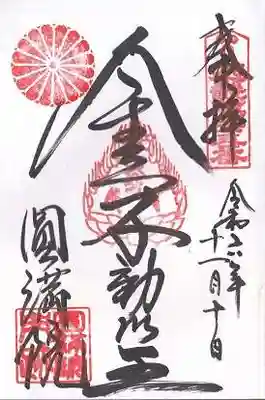 奉拝
令和六年
十一月十日
金色不動明王
圓満院